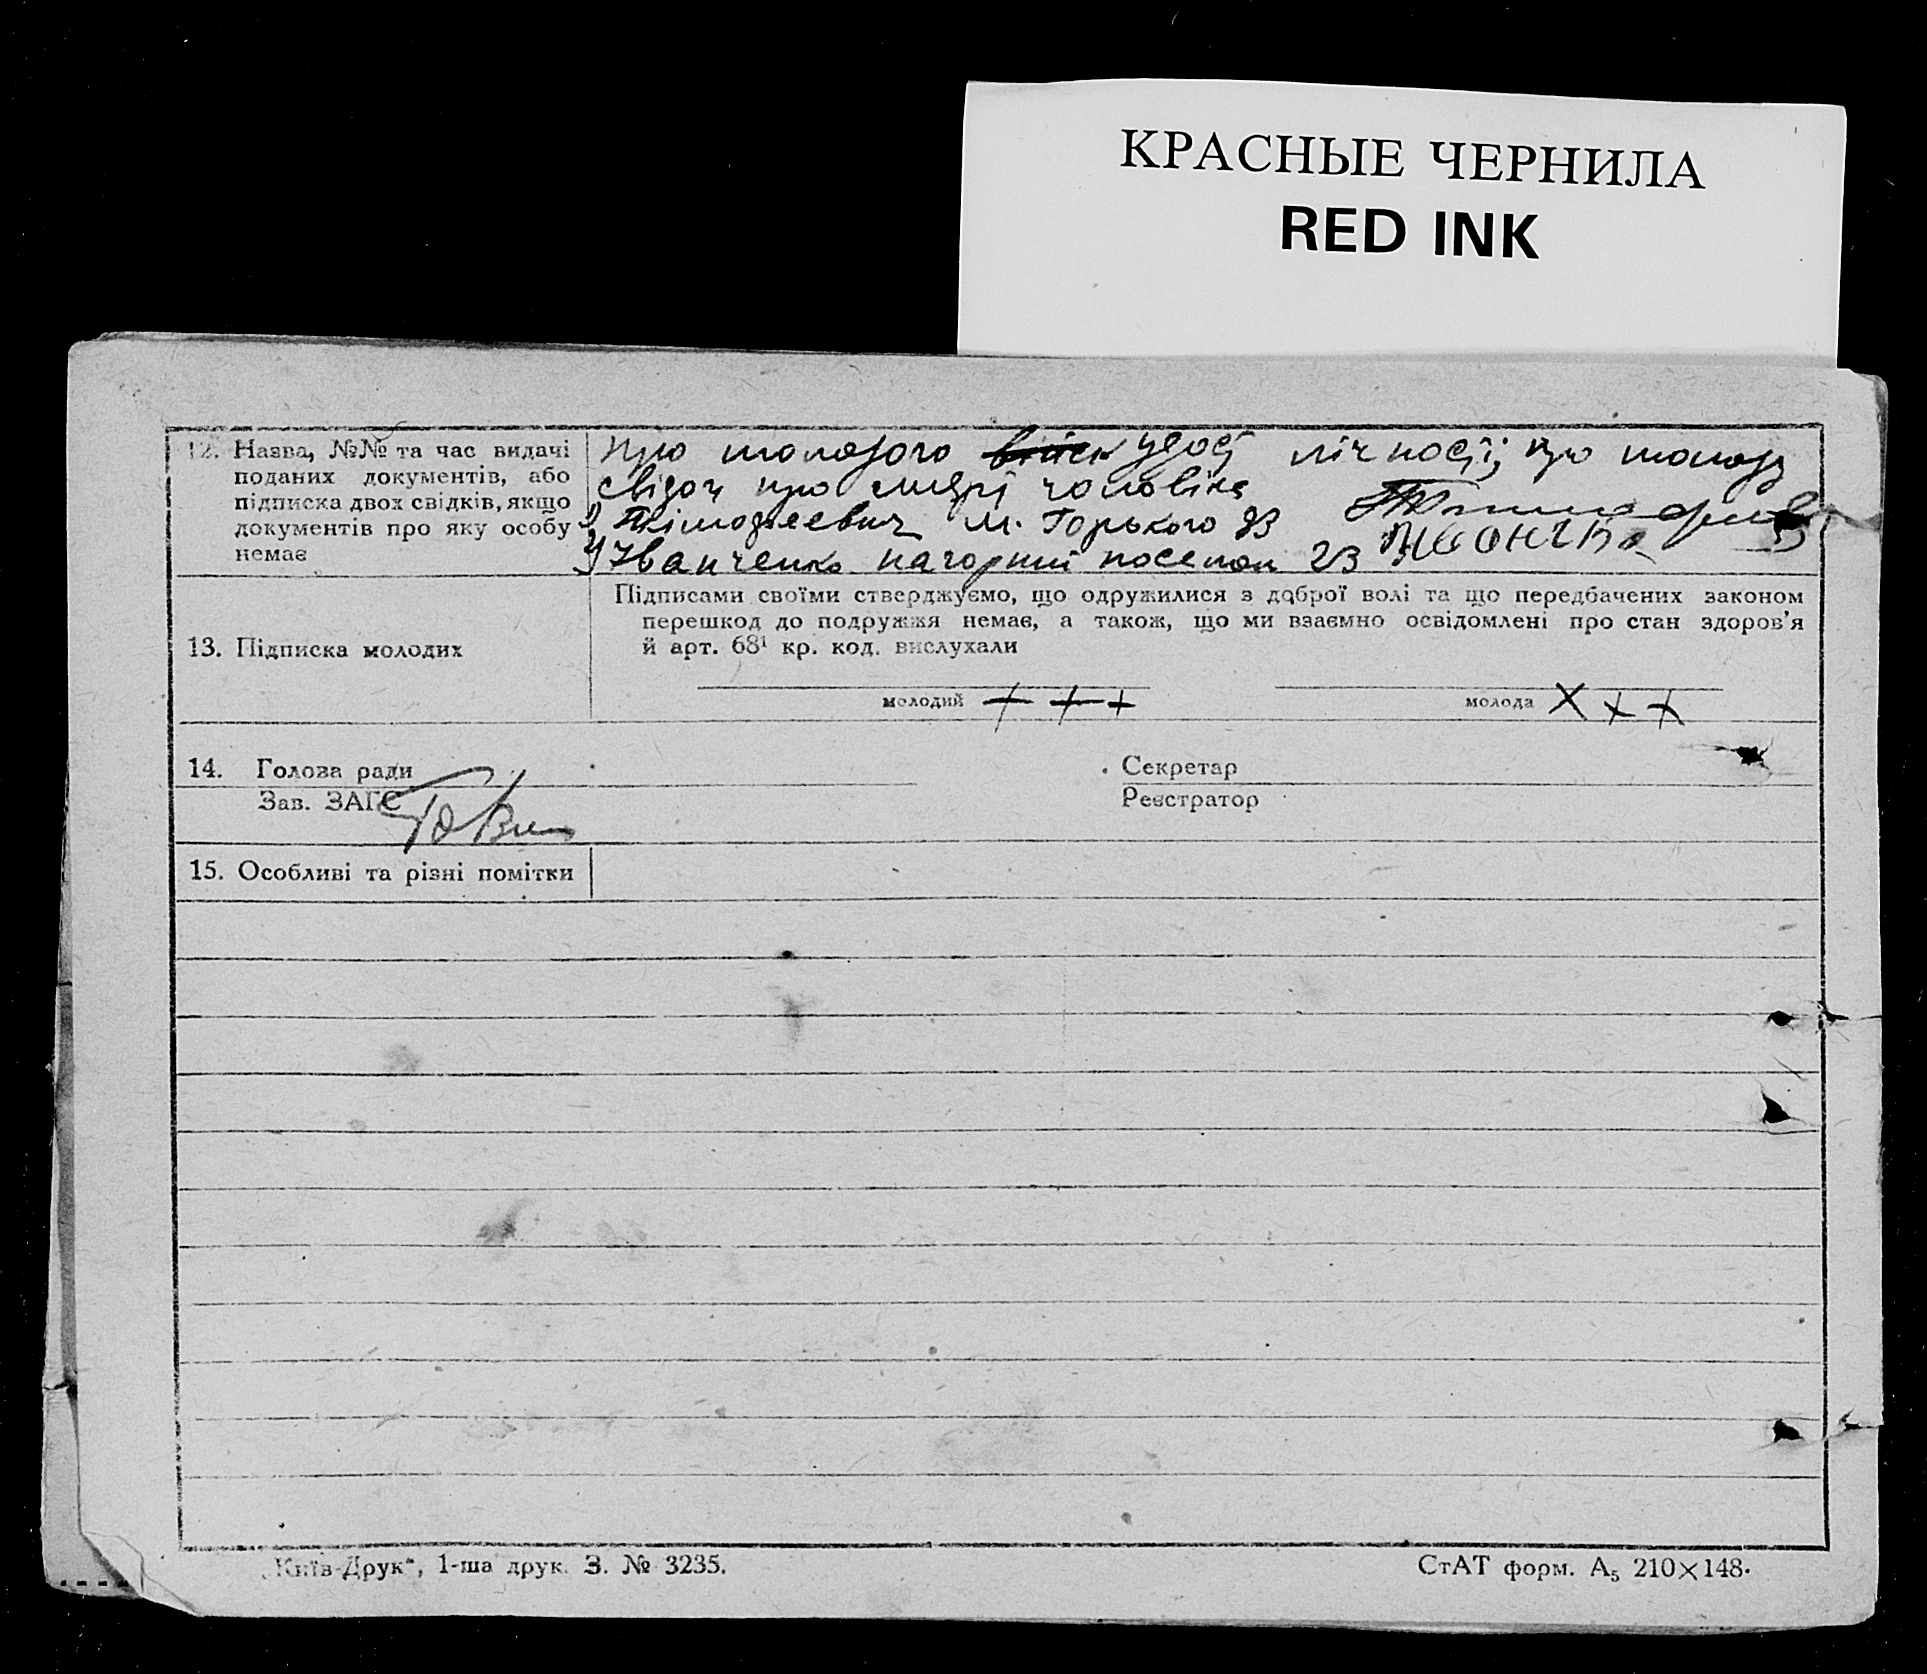 КРАСНЫЕ ЧЕРНИЛА
RED INK
12. Назва, №№ та час видачі
поданих документів, або
підписка двох свідків, якщо
документів про яку особу
немає
про молодого удост лічності; про молоду
свідоч про смерті чоловіка
1) М. Горького 33
2) Іванченко нагорний поселок 23
13. Підписка молодих
Підписами своїми стверджуємо, що одружилися з доброї волі та що передбачених законом
перешкод до подружжя немає, а також, що ми взаємно освідомлені про стан здоров'я
й арт. 68¹ кр. код. вислухали
молодий + + +
молода X X X
14. Голова ради
Зав. ЗАГС
Секретар
Реєстратор
15. Особливі та різні помітки
„Київ-Друк", 1-ша друк. З. № 3235.
СтАТ форм. А₅ 210×148.